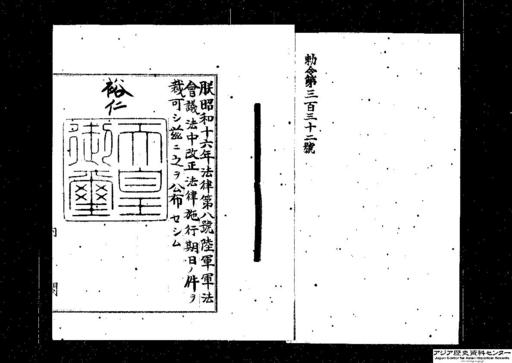 勅令第三百三十二號
朕昭和十六年法律第八號陸軍軍法
會議法中改正法律施行期日ノ件ヲ
裁可シ茲ニ之ヲ公布セシム
裕仁
天皇
御璽
内閣
アジア歴史資料センター
Japan Center for Asian Historical Records